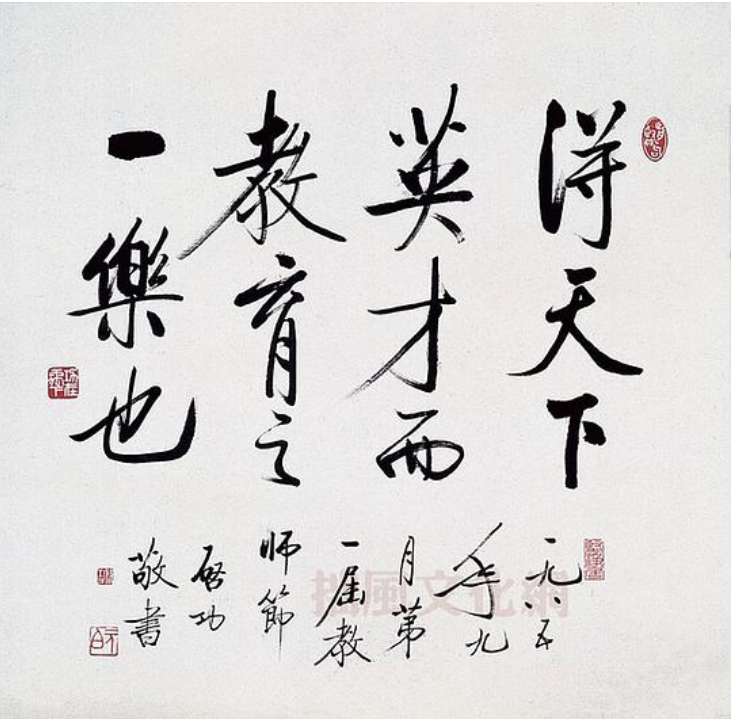 得天下
英才而
教育之
一樂也
一九八五
年九
月第
一届教
師節
啓功
敬書
拙風文化網